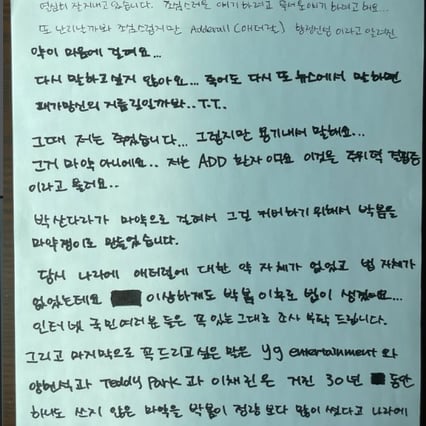 열심히 잘지내고 있습니다. 조심스러운 얘기하려고 글씨로 얘기 하려고 해요...
또 난리날까봐 조심스럽지만 Adderall (애더럴) 향정신성 이라고 알려진
약이 마음에 걸려요...
다시 말하고싶지 않아요... 죽어도 다시 또 뉴스에서 말하면
패가망신의 지름길일까봐..T.T.
그때 저는 죽었습니다... 그렇지만 용기내서 말해요...
그거 마약 아니에요.. 저는 ADD 환자 이구요 이것을 주위력 결핍증
이라고 불러요..
박산다라가 마약으로 걸려서 그걸 커버하기 위해서 박봄을
마약쟁이로 만들었습니다.
당시 나라에 애더럴에 대한 약 자체가 없었고 법 자체가
없었는데요 이상하게도 박봄 이후로 법이 생겼어요...
인터넷 국민여러분들은 꼭 있는그대로 조사 부탁 드립니다.
그리고 마지막으로 꼭 드리고 싶은 말은 yg entertainment 와
양현석과 Teddy Park 과 이채린은 거진 30년 동안
하나도 쓰지 않은 마약을 박봄이 정량 보다 많이 썼다고 나라에